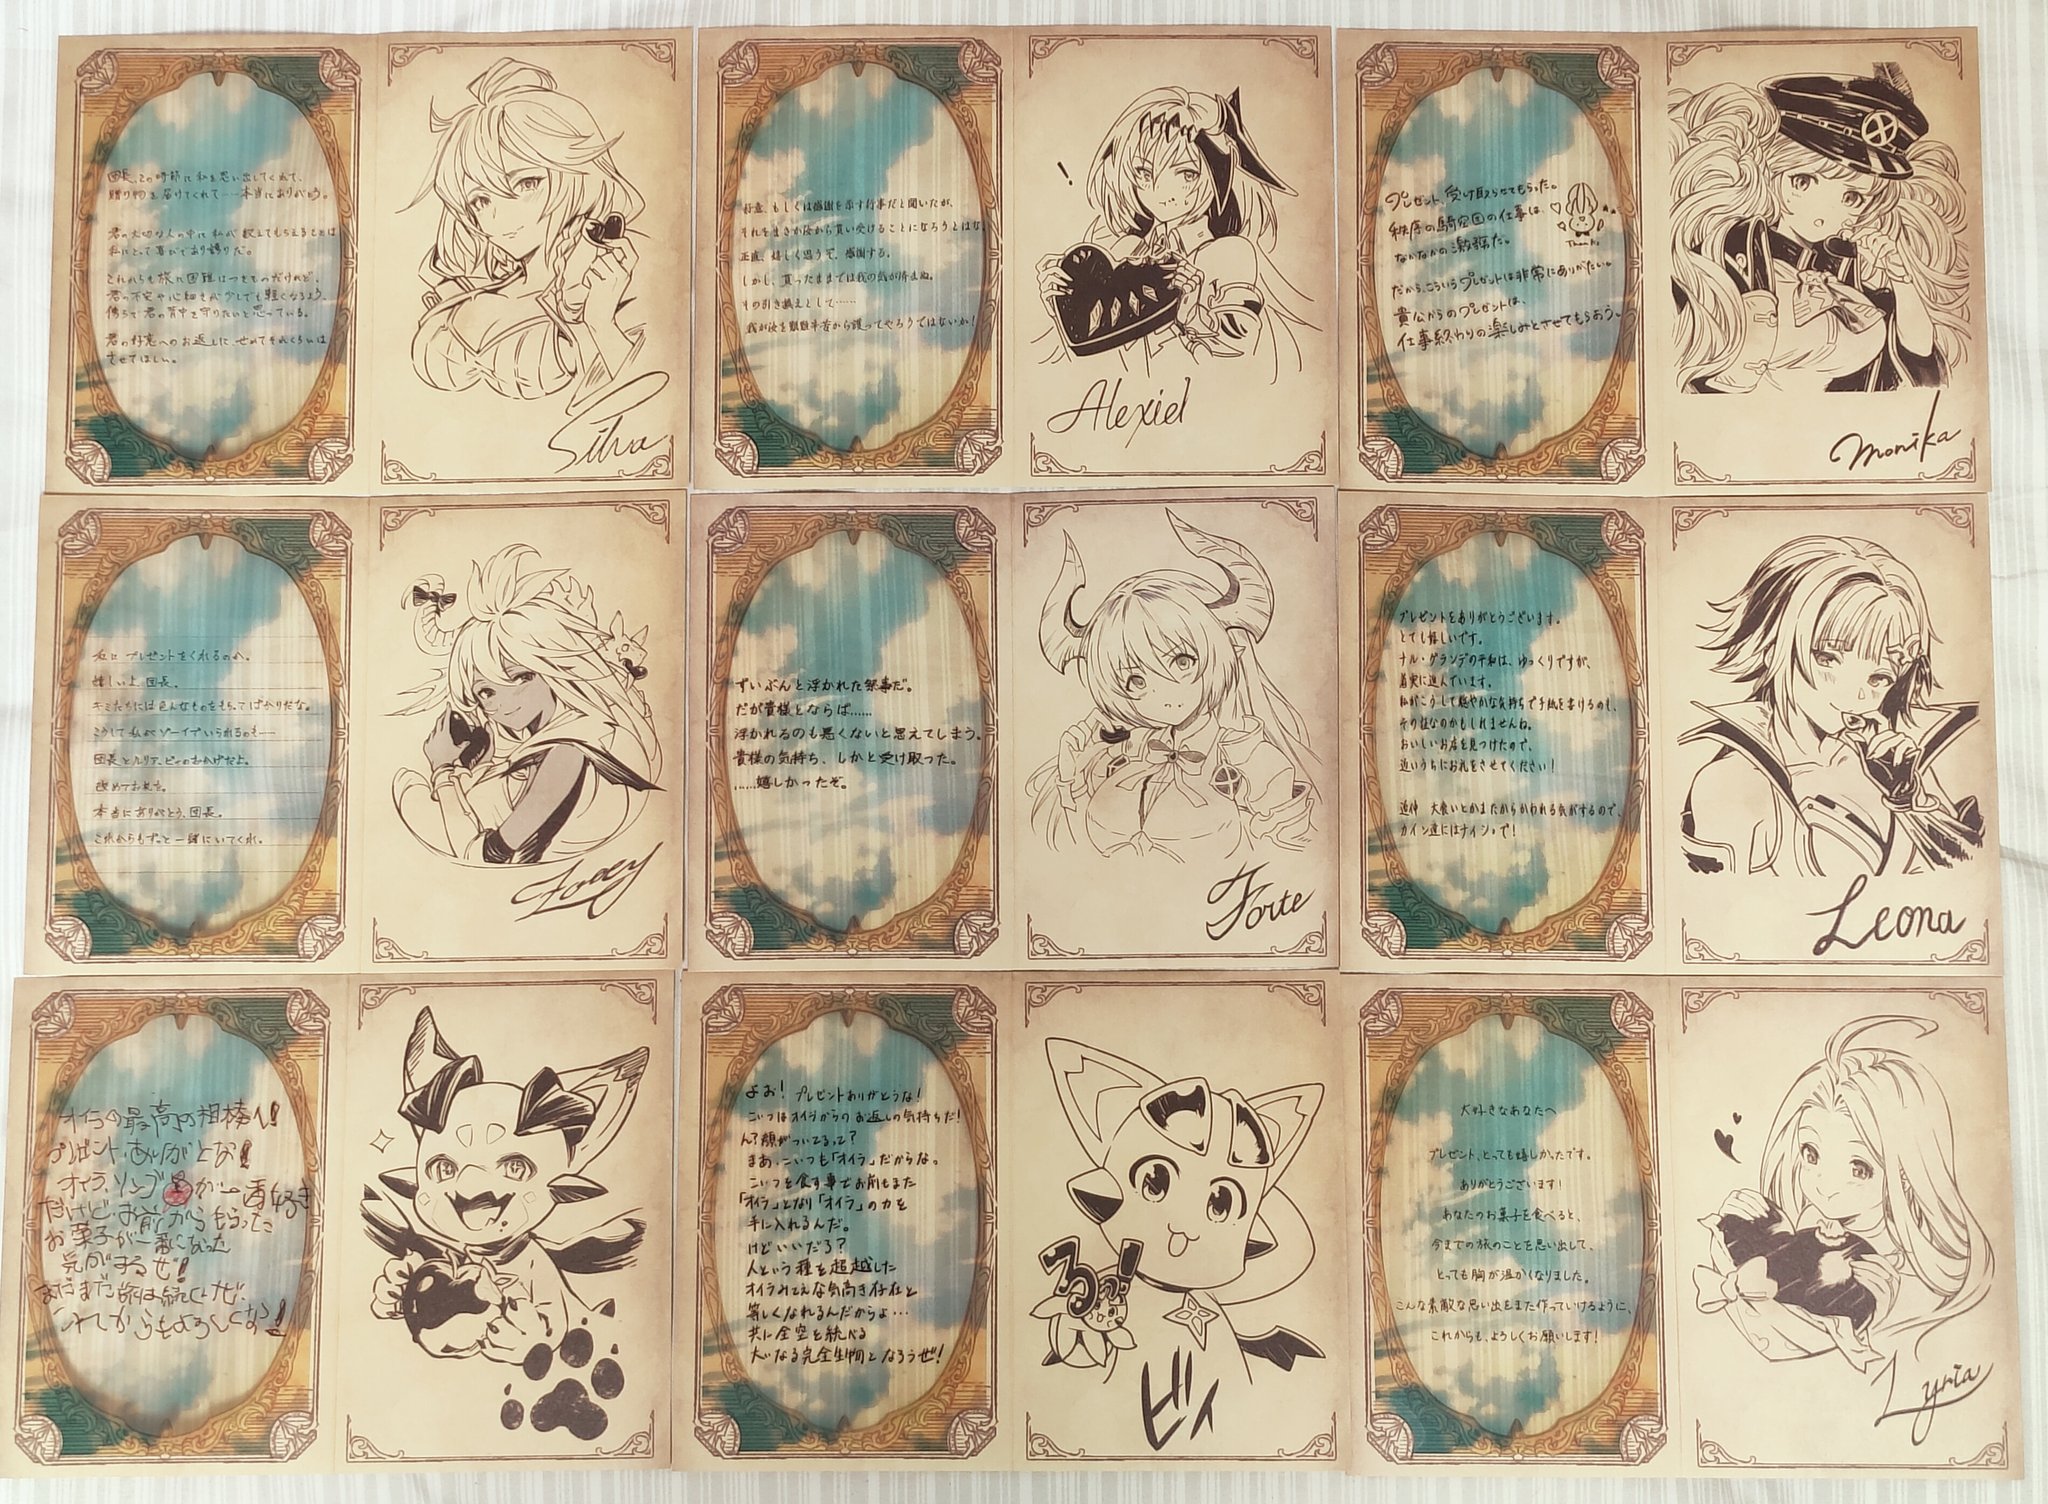 団長、この時節に私を思い出してくれて、
贈り物を届けてくれて……本当にありがとう。
君の大切な人の中に私が数えてもらえることは
私にとって喜びであり誇りだ。
これからも旅に困難はつきものだけれど、
君の不安や心細さが少しでも軽くなるよう、
傍らで君の背中を守りたいと思っている。
君の好意へのお返しに、せめてそれくらいは
させてほしい。
Silva
好意、もしくは感謝を示す行事だと聞いたが、
それをまさか汝から貰い受けることになろうとはな。
正直、嬉しく思うぞ、感謝する。
しかし、貰ったままでは我の気が済まぬ。
その引き換えとして……
我が汝を艱難辛苦から護ってやろうではないか!
!
Alexiel
プレゼント、受け取らせてもらった。
秩序の騎空団の仕事は、
なかなかの激務だ。
Thanks
だから、こういうプレゼントは非常にありがたい。
貴公からのプレゼントは、
仕事終わりの楽しみとさせてもらおう。
Monika
私にプレゼントをくれるのか。
嬉しいよ、団長。
キミたちには色んなものをもらってばかりだな。
こうして私がゾーイでいられるのも……
団長とルリア、ビィのおかげだよ。
改めてお礼を。
本当にありがとう、団長。
これからもずっと一緒にいてくれ。
Zooey
ずいぶんと浮かれた祭事だ。
だが貴様とならば……
浮かれるのも悪くないと思えてしまう。
貴様の気持ち、しかと受け取った。
……嬉しかったぞ。
Forte
プレゼントをありがとうございます。
とても嬉しいです。
ナル・グランデの平和は、ゆっくりですが、
着実に進んでいます。
私がこうして穏やかな気持ちで手紙を書けるのも、
その証なのかもしれませんね。
おいしいお店を見つけたので、
近いうちにお礼をさせてください!
追伸 大食いとかまたからかわれる気がするので、
カイン達にはナイショで!
Leona
オイラの最高の相棒へ!
プレゼントありがとな!
オイラ、リンゴが一番好き
だけど、お前からもらった
お菓子が一番になった
気がするぜ!
まだまだ旅は続くけど
これからもよろしくな!
よお! プレゼントありがとうな!
こいつはオイラからのお返しの気持ちだ!
ん?顔がついてるって?
まあ、こいつも「オイラ」だからな。
こいつを食す事でお前もまた
「オイラ」となり「オイラ」の力を
手に入れるんだ。
けどいいだろ?
人という種を超越した
オイラみてぇな気高き存在と
等しくなれるんだからよ…
共に全空を統べる
大いなる完全生物となろうぜ!
るっ!
ビィ
大好きなあなたへ
プレゼント、とっても嬉しかったです。
ありがとうございます!
あなたのお菓子を食べると、
今までの旅のことを思い出して、
とっても胸が温かくなりました。
こんな素敵な思い出をまた作っていけるように、
これからも、よろしくお願いします!
Lyria